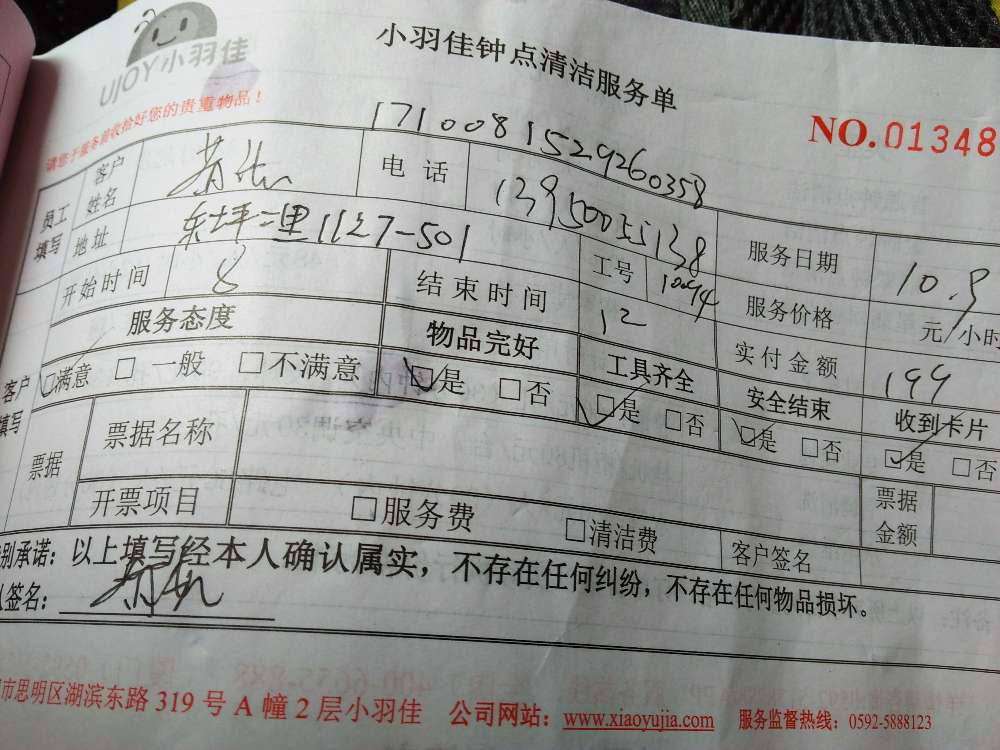 UJOY小羽佳
小羽佳钟点清洁服务单
请您于服务前收拾好您的贵重物品！
171008152926 0358
NO.01348
员工填写
客户姓名
电话 13950055138
服务日期 10.9
地址 东坪二里1127-501
工号 10494
服务价格 元/小时
开始时间 8
结束时间 12
实付金额 199
服务态度 物品完好 工具齐全 安全结束 收到卡片
客户填写
☑满意 □一般 □不满意 ☑是 □否 ☑是 □否 ☑是 □否 ☑是 □否
票据
票据名称
开票项目 □服务费 □清洁费
票据金额
客户签名
别承诺：以上填写经本人确认属实，不存在任何纠纷，不存在任何物品损坏。
签名：
市思明区湖滨东路 319 号 A 幢 2 层小羽佳 公司网站：www.xiaoyujia.com 服务监督热线：0592-5888123